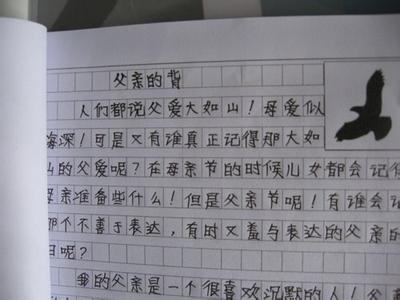 父亲的背
人们都说父爱大如山！母爱似
海深！可是又有谁真正记得那大如
山的父爱呢？在母亲节的时候儿女都会记得
母亲准备些什么！但是父亲节呢！有谁会记
那个不善于表达，有时又羞与表达的父亲的
日呢？
我的父亲是一个很喜欢沉默的人！父